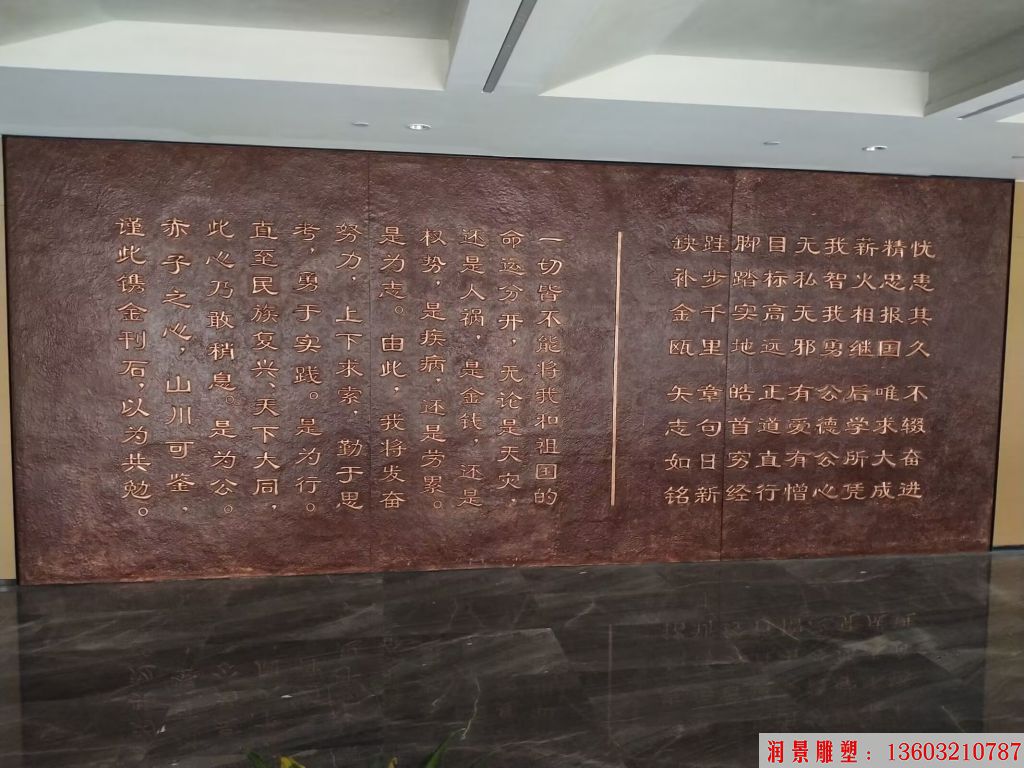 忧患其久 不辍奋进
精忠报国 唯求大成
薪火相继 后学所凭
我智我勇 公德公心
无私无邪 有爱有憎
目标高远 正道直行
脚踏实地 皓首穷经
跬步千里 章句日新
缺补金瓯 矢志如铭
一切皆不能将我和祖国的
命运分开，无论是天灾，
还是人祸，是金钱，还是
权势，是疾病，还是劳累。
是为志。由此，我将发奋
努力，上下求索，勤于思
考，勇于实践。是为行。
直至民族复兴、天下大同，
此心乃敢稍息。是为公。
赤子之心，山川可鉴，
谨此镌金刊石，以为共勉。
润景雕塑：13603210787